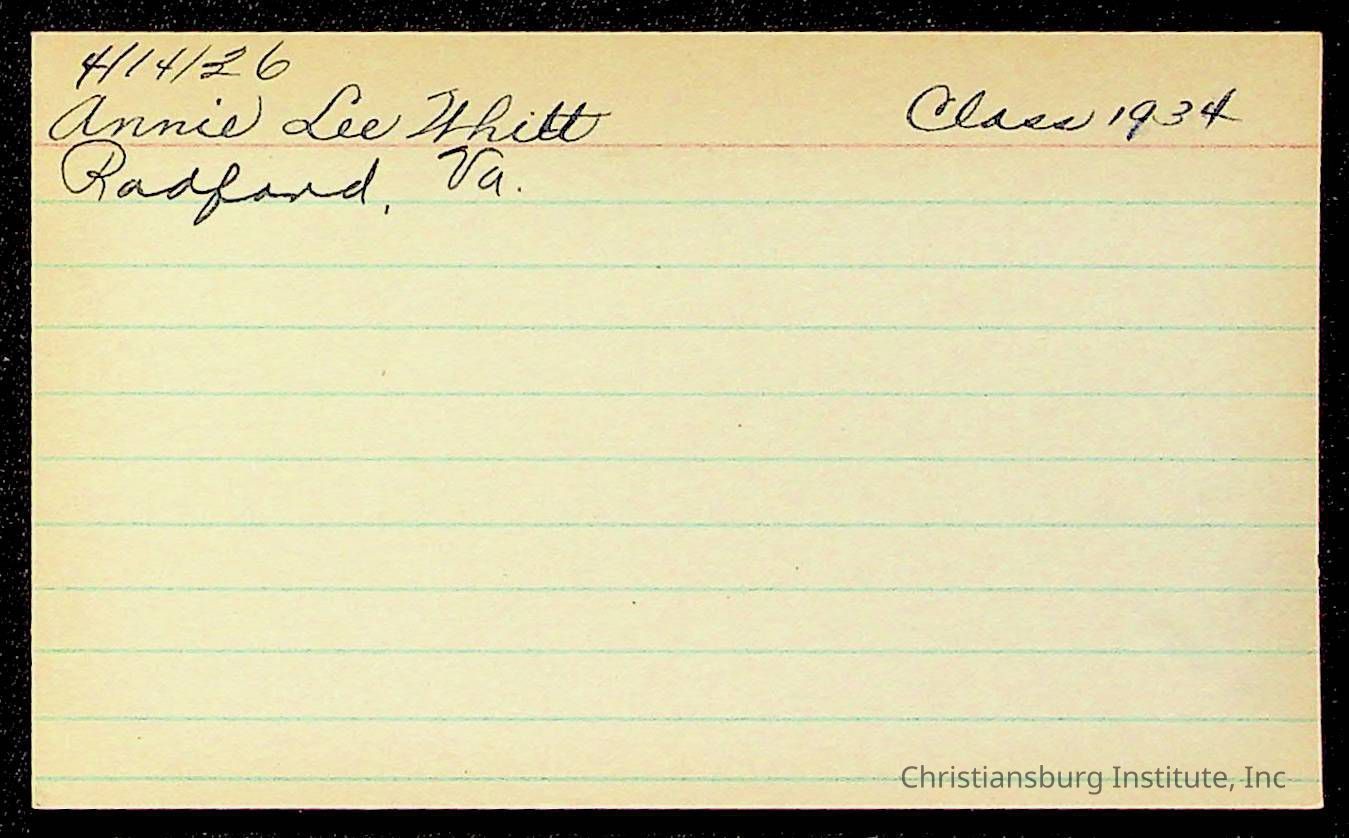 4/14/26
Annie Lee Whitt Class 1934
Radford, Va.
Christiansburg Institute, Inc